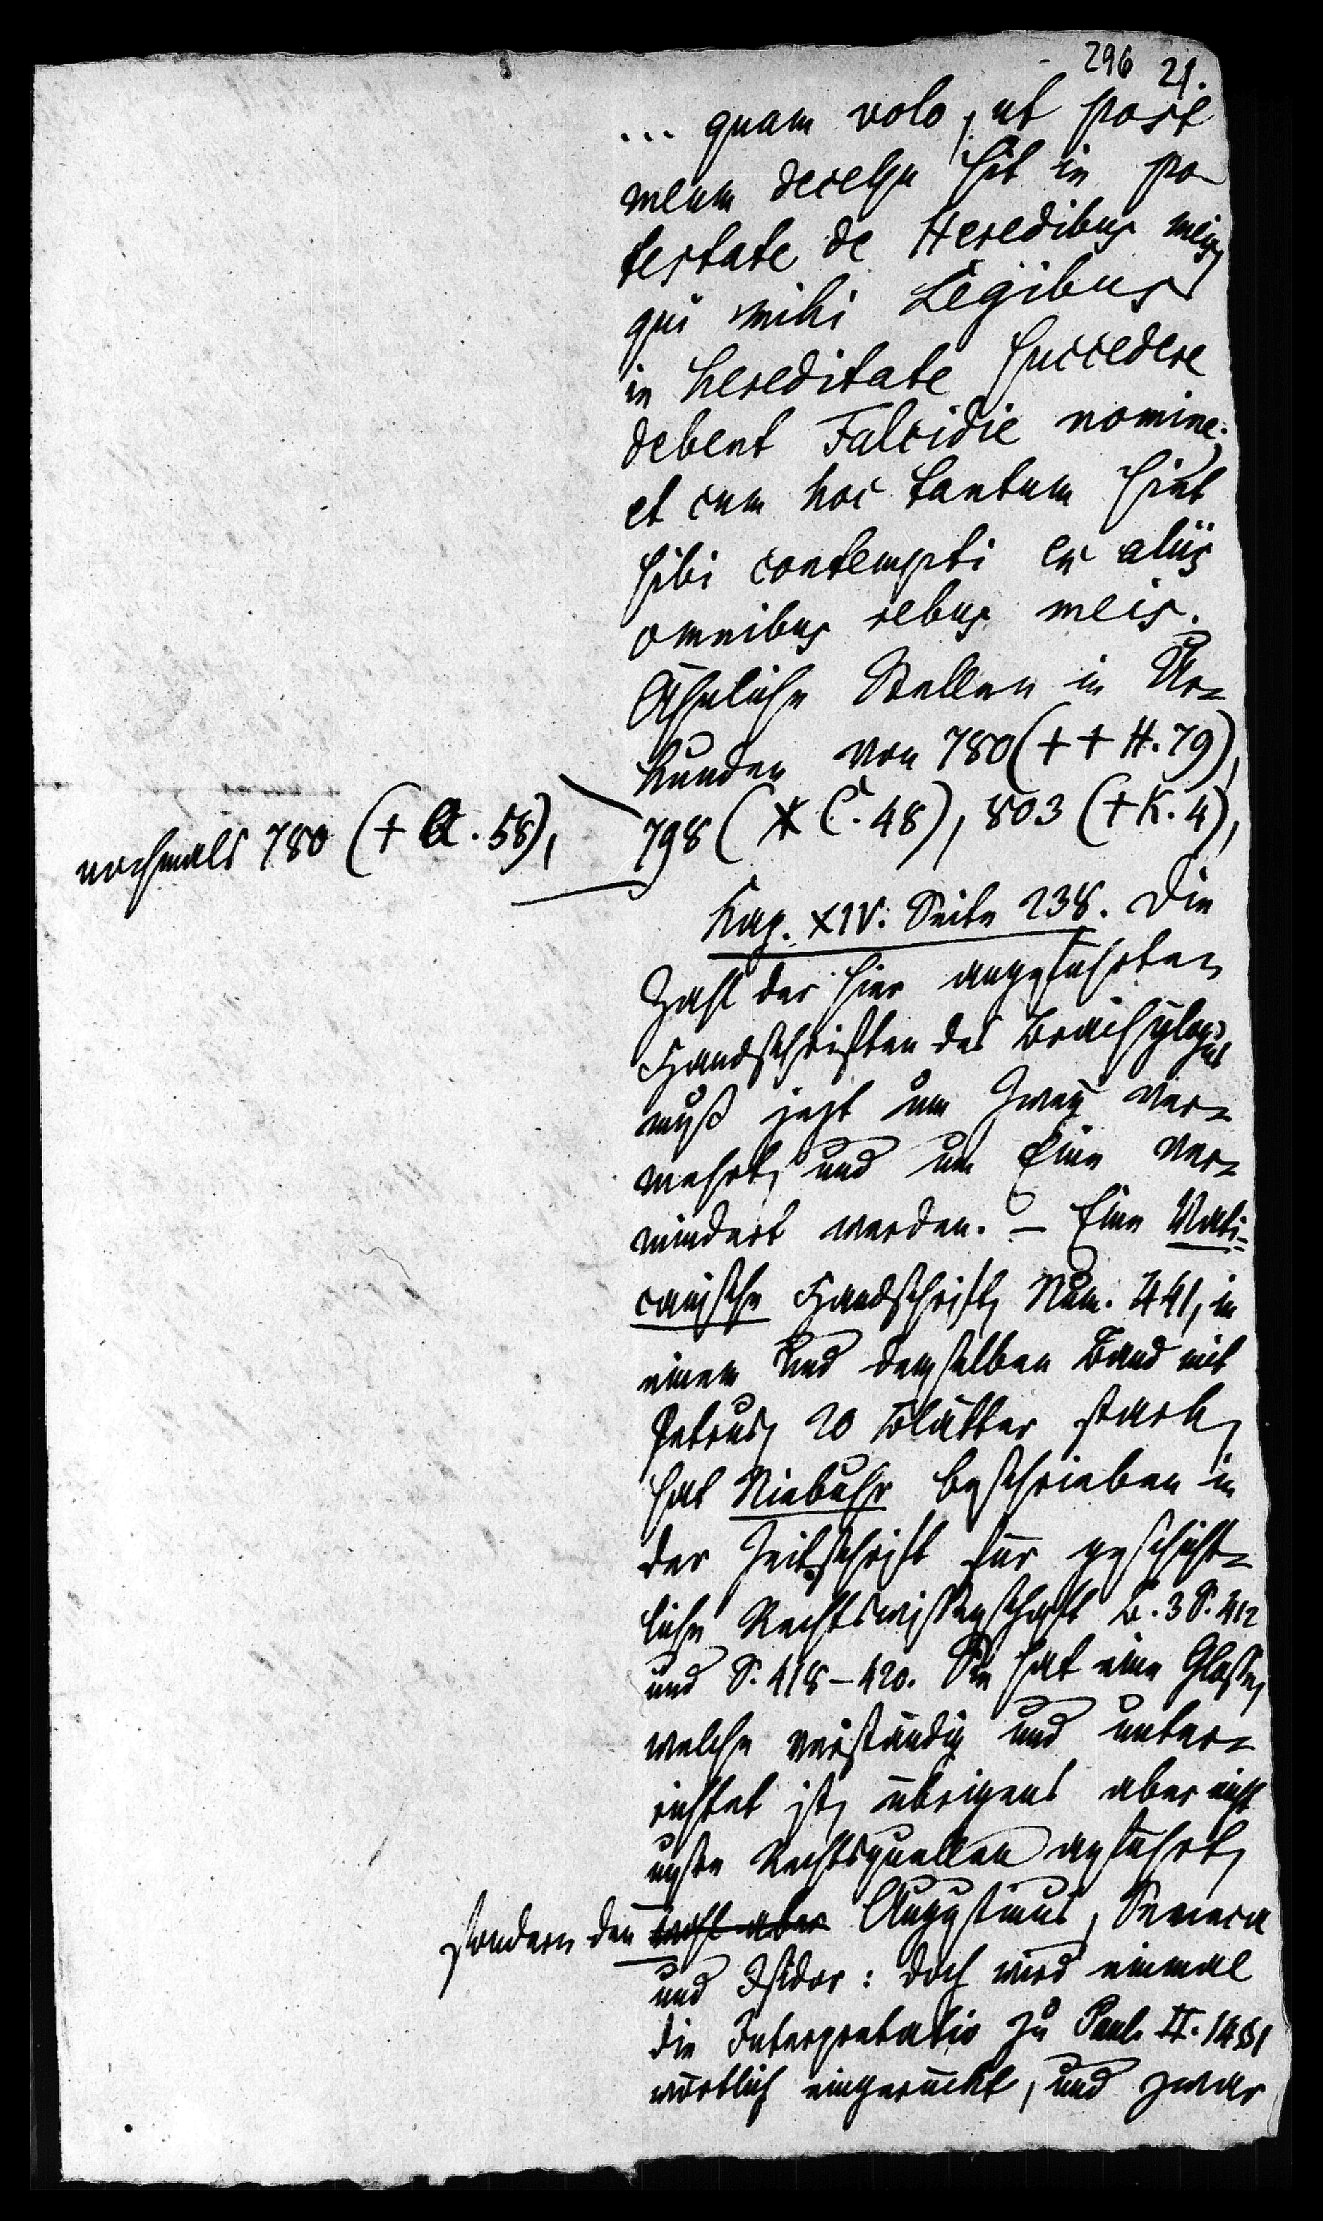 296 21.
... quam volo, ut post
meum decessu sit in po-
testate de Heredibus meis,
qui mihi Legibus
in hereditate succedere
debent Falcidie nomine;
et cum hoc tantum sint
sibi contempti ex aliis
omnibus rebus meis.
Ähnliche Stellen in Ur-
kunden von 780 (++ H. 79),
nochmals 780 (+ Q. 58),
798 (* C. 48), 803 (+ K. 4),
Kap. XIV. Seite 238. Die
Zahl der hier angeführten
Handschriften des Brachylogus
muß jezt um Zwey ver-
mehrt, und um Eine ver-
mindert werden. – Eine Vati-
canische Handschrift, Num. 441, in
einem und demselben Band mit
Petrus, 20 Blätter stark,
hat Niebuhr beschrieben in
der Zeitschrift für geschicht-
liche Rechtswissenschaft B. 3 S. 412
und S. 418–420. Sie hat eine Glosse,
welche verständig und unter-
richtet ist, übrigens aber nicht
unsre Rechtsquellen anführt,
sondern den Augustinus, Seneca
und Isidor: doch wird einmal
die Interpretatio zu Paul. II. 14 § 1
wörtlich eingerückt, und zwar